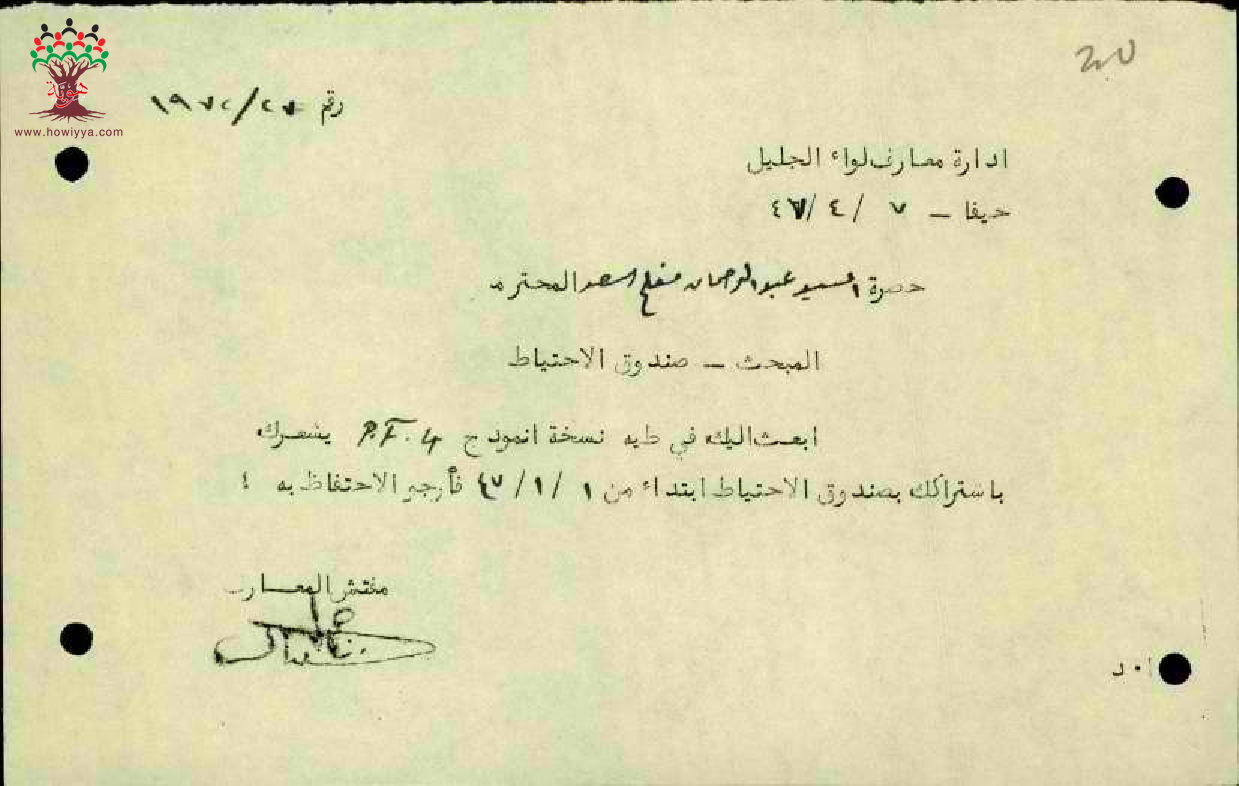 هوية
www.howiyya.com
رقم
ادارة معارف لواء الجليل
حيفا - ٧ / ٤ / ٤٧
حضرة السيد عبد الرحمان مفلح السعد المحترم
المبحث - صندوق الاحتياط
ابعث اليك في طيه نسخة انموذج P.F.4 يشعرك
باشتراكك بصندوق الاحتياط ابتداء من ١ / ١ / ٤٧ فأرجو الاحتفاظ به
مفتش المعارف
ا٠د